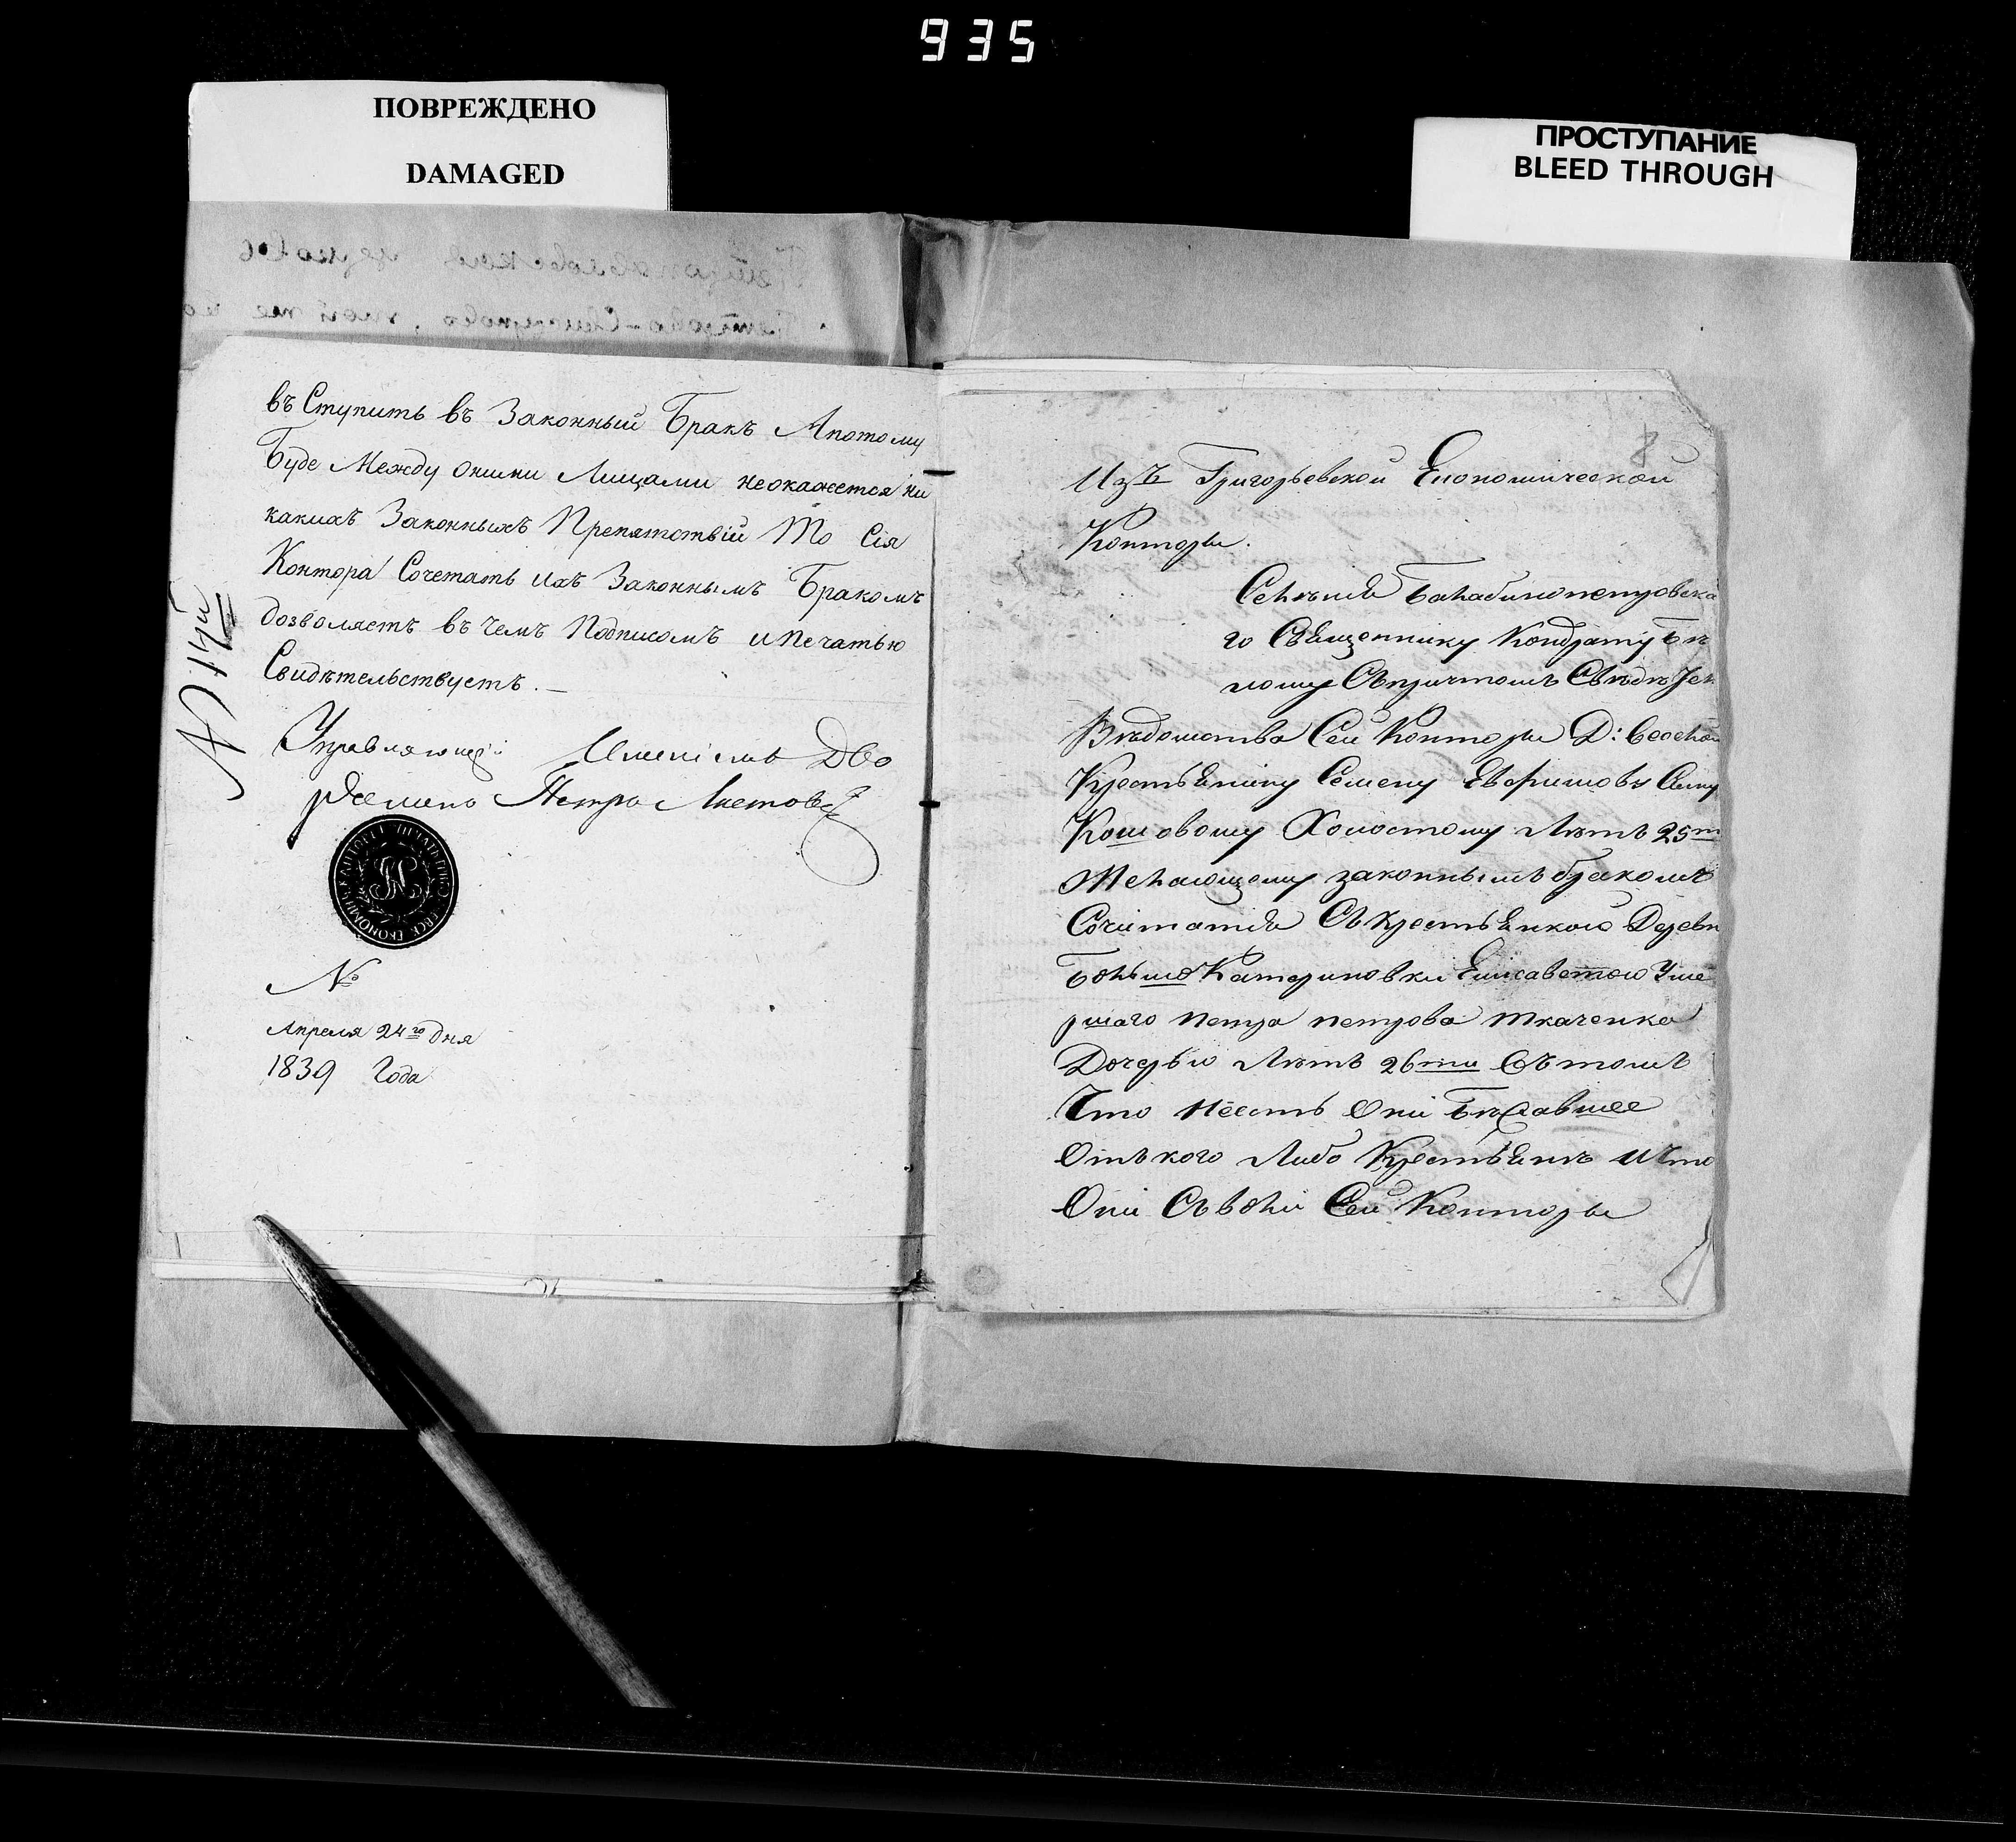 935
ПОВРЕЖДЕНО
DAMAGED
ПРОСТУПАНИЕ
BLEED THROUGH
въ Ступить въ Законный Бракъ Апотому
Буде Между оними Лицами неокажется ни
какихъ Законныхъ Препятствій То Сія
Контора Сочетать ихъ Законнымъ Бракомъ
дозволяетъ въ чемъ Подписомъ и Печатью
Свидѣтельствуетъ.
№ 14й
Управляющій Имѣніемъ Дво
рянинъ Петро
№
Апреля 24го дня
1839 Года
8
Изъ Григорьевской Економической
Конторы.
Селенія Балабинопетровска
го Священнику Кондрату Бѣ
лому Съпричтомъ
Вѣдомства Сей Конторы Д:
Крестьянину Семену Евфимову Сыну
Кошовому Холостому Лѣтъ 25ти
Желающему законнымъ бракомъ
Сочитатся Съ Крестьянкою Деревн
Больше Катериновки Елисаветою Уме
ршаго Петра Петрова Ткаченка
Дочерью Лѣтъ 26ти Въ томъ
Что Несть Они
Отъ кого Либо Крестьянъ и Что
Они Съ воли Сей Конторы